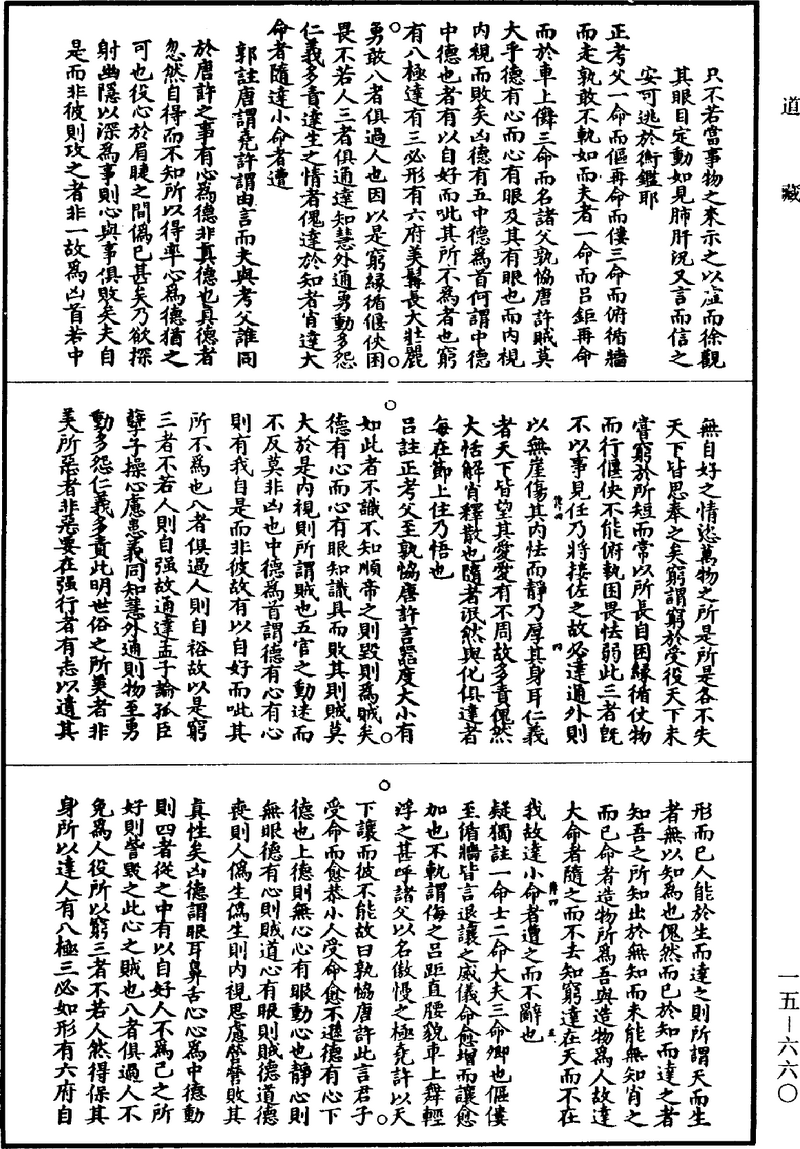 道藏
只不若當事物之來示之以涖而徐觀
其眼目定動如見肺肝況又言而信之
安可逃於衡鑑耶
正考父一命而傴再命而僂三命而俯循牆
而走孰敢不軌如而夫者一命而呂鉅再命
而於車上儛三命而名諸父孰恊唐許賊莫
大乎德有心而心有眼及其有眼也而內視
內視而敗矣凶德有五中德為首何謂中德
中德也者有以自好而吡其所不為者也窮
有八極達有三必形有六府美髯長大壯麗
勇敢八者俱過人也因以是窮緣循偃佒困
畏不若人三者俱通達知慧外通勇動多怨
仁義多責達生之情者傀達於知者肖達大
命者隨達小命者遭
郭註唐謂堯許謂由言而夫與考父誰同
於唐許之事有心為德非真德也真德者
忽然自得而不知所以得率心為德猶之
可也役心於眉睫之間偽已甚矣乃欲探
射幽隱以深為事則心與事俱敗矣夫自
是而非彼則攻之者非一故為凶首若中
無自好之情恣萬物之所是所是各不失
天下皆思奉之矣窮謂窮於受役天下未
嘗窮於所短而常以所長自困緣循仗物
而行偃佒不能俯執困畏怯弱此三者旣
不以事見任乃將接佐之故必達通外則
以無崖傷其內怯而靜乃厚其身耳仁義
者天下皆望其愛愛有不周故多責傀然
大恬解肖釋散也隨者泯然與化俱達者
每在節上住乃悟也
呂註正考父至孰恊唐許言器度大小有
如此者不識不知順帝之則毀則為賊矣
德有心而心有眼知識具而敗其則賊莫
大於是內視則所謂賊也五官之動迷而
不反莫非凶也中德為首謂德有心有心
則有我自是而非彼故有以自好而吡其
所不為也八者俱過人則自裕故以是窮
三者不若人則自强故通達孟子論孤臣
孽子操心慮患義同知慧外通則物至勇
動多怨仁義多責此明世俗之所美者非
美所惡者非惡要在强行者有志以遺其
形而已人能於生而達之則所謂天而生
者無以知為也傀然而已於知而達之者
知吾之所知出於無知而未能無知肖之
而已命者造物所為吾與造物為人故達
大命者隨之而不去知窮達在天而不在
我故達小命者遭之而不辭也
疑獨註一命士二命大夫三命卿也傴僂
至循牆皆言退讓之威儀命愈增而讓愈
加也不軌謂侮之呂距直腰貌車上舞輕
浮之甚呼諸父以名傲慢之極堯許以天
下讓而彼不能故曰孰恊唐許此言君子
受命而愈恭小人受命愈不遜德有心下
德也上德則無心心有眼動心也靜心則
無眼德有心則賊道心有眼則賊德道德
喪則人偽生偽生則內視思慮營營敗其
真性矣凶德謂眼耳鼻舌心心為中德動
則四者從之中有以自好人不為己之所
好則訾毀之此心之賊也八者俱過人不
免為人役所以窮三者不若人然得保其
身所以達人有八極三必如形有六府自
一五—六六〇